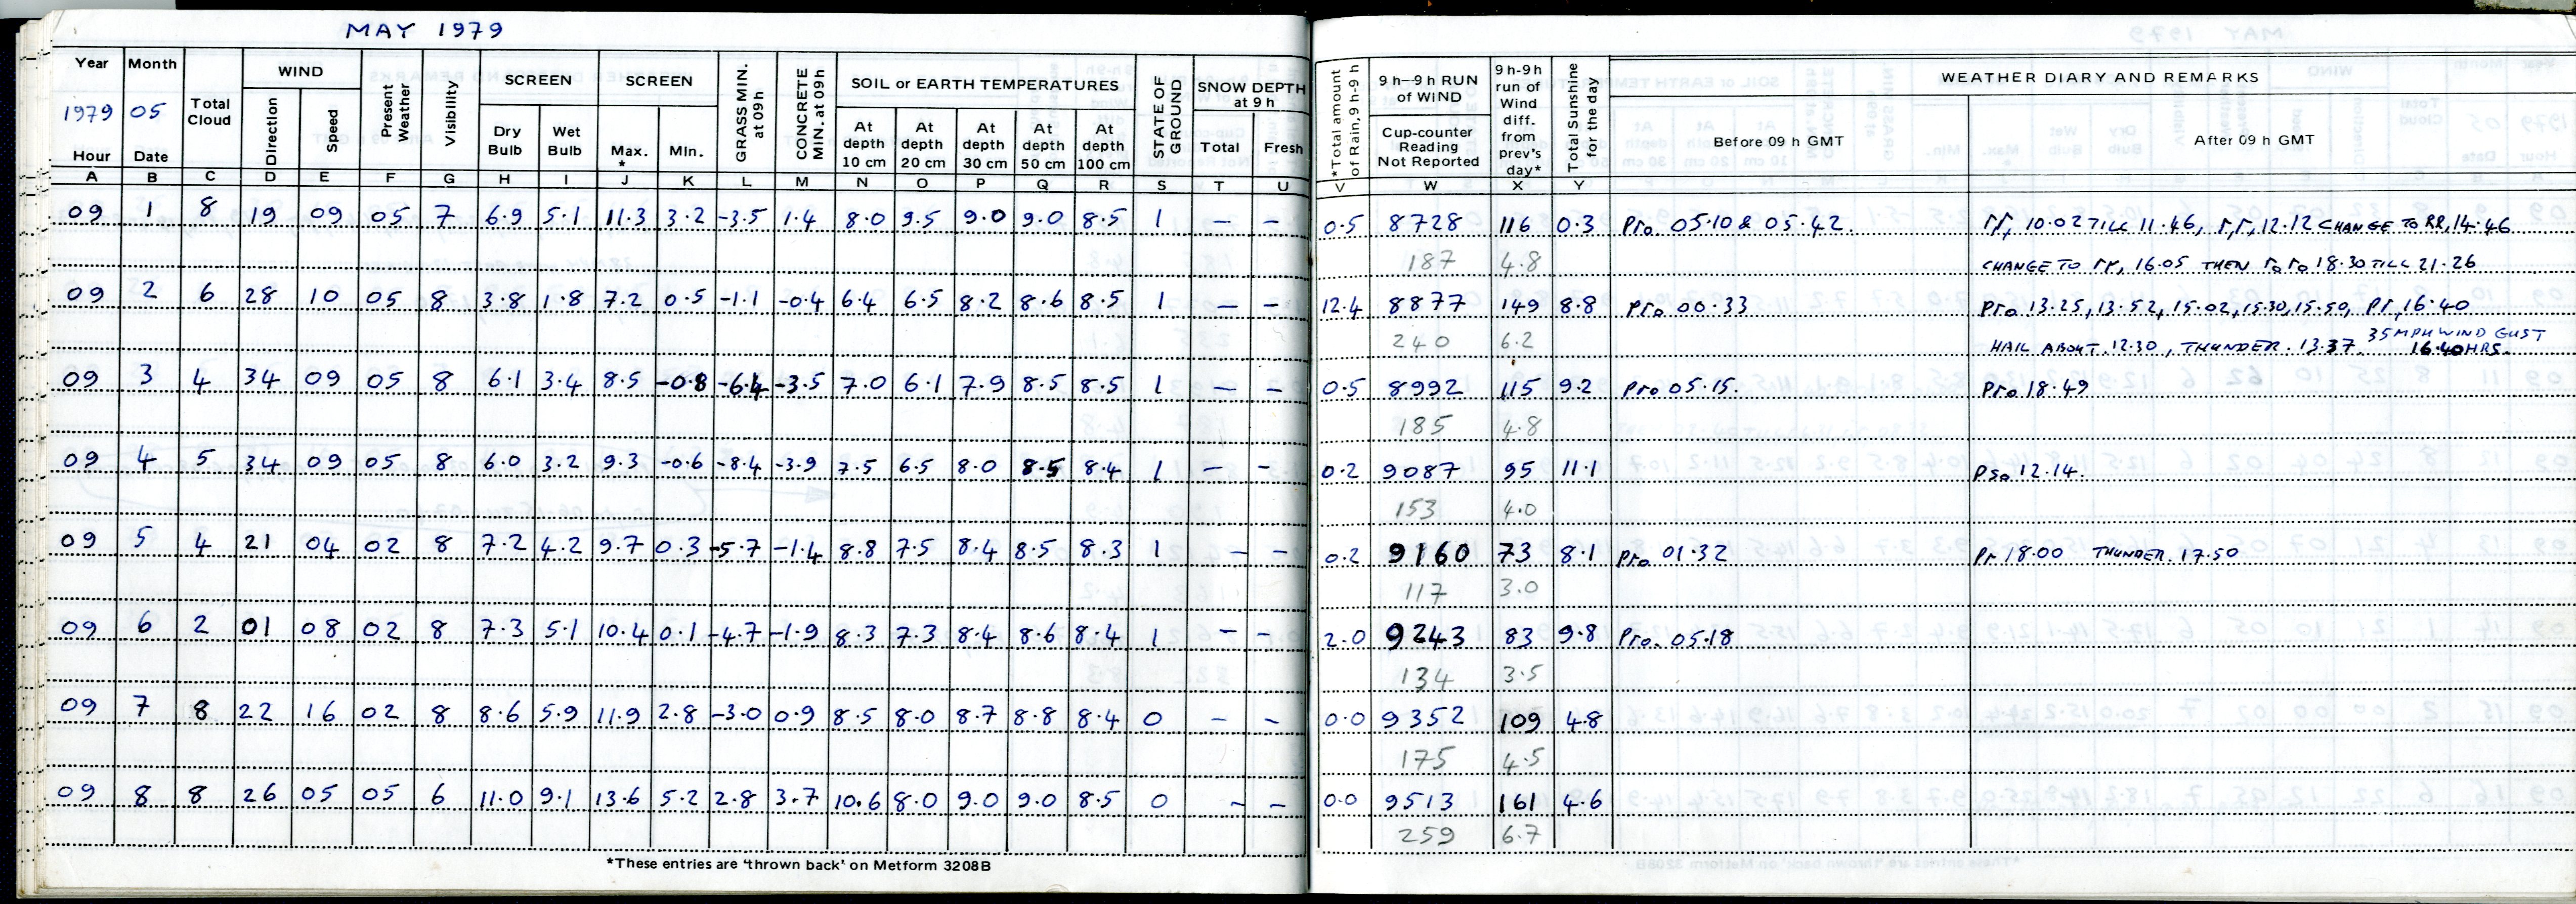 MAY 1979
Year Month Total Cloud WIND Direction Speed Present Weather Visibility SCREEN Dry Bulb Wet Bulb SCREEN Max. * Min. GRASS MIN. at 09h CONCRETE MIN. at 09h SOIL or EARTH TEMPERATURES At depth 10 cm At depth 20 cm At depth 30 cm At depth 50 cm At depth 100 cm STATE OF GROUND SNOW DEPTH at 9 h Total Fresh *Total amount of Rain, 9 h-9 h 9 h-9 h RUN of WIND Cup-counter Reading Not Reported 9 h-9h run of Wind diff. from prev's day* Total Sunshine for the day WEATHER DIARY AND REMARKS Before 09 h GMT After 09 h GMT
1979 05
Hour Date
A B C D E F G H I J K L M N O P Q R S T U V W X Y
09 1 8 19 09 05 7 6.9 5.1 11.3 3.2 -3.5 1.4 8.0 9.5 9.0 9.0 8.5 1 - - 0.5 8728 116 0.3 Pro 05.10 & 05.42. rr, 10.02 TILL 11.46, r,r, 12.12 CHANGE TO RR, 14.46
187 4.8 CHANGE TO rr, 16.05 THEN roro 18.30 TILL 21.26
09 2 6 28 10 05 8 3.8 1.8 7.2 0.5 -1.1 -0.4 6.4 6.5 8.2 8.6 8.5 1 - - 12.4 8877 149 8.8 Pro 00.33 Pro 13.25, 13.52, 15.02, 15.30, 15.50, Pr, 16.40
240 6.2 HAIL ABOUT 12.30, THUNDER. 13.37. 35 MPH WIND GUST 16.40HRS.
09 3 4 34 09 05 8 6.1 3.4 8.5 -0.8 -6.4 -3.5 7.0 6.1 7.9 8.5 8.5 1 - - 0.5 8992 115 9.2 Pro 05.15. Pro 18.49
185 4.8
09 4 5 34 09 05 8 6.0 3.2 9.3 -0.6 -8.4 -3.9 7.5 6.5 8.0 8.5 8.4 1 - - 0.2 9087 95 11.1 Pso 12.14.
153 4.0
09 5 4 21 04 02 8 7.2 4.2 9.7 0.3 -5.7 -1.4 8.8 7.5 8.4 8.5 8.3 1 - - 0.2 9160 73 8.1 Pro 01.32 Pr 18.00 THUNDER. 17.50
117 3.0
09 6 2 01 08 02 8 7.3 5.1 10.4 0.1 -4.7 -1.9 8.3 7.3 8.4 8.6 8.4 1 - - 2.0 9243 83 9.8 Pro. 05.18
134 3.5
09 7 8 22 16 02 8 8.6 5.9 11.9 2.8 -3.0 0.9 8.5 8.0 8.7 8.8 8.4 0 - - 0.0 9352 109 4.8
175 4.5
09 8 8 26 05 05 6 11.0 9.1 13.6 5.2 2.8 3.7 10.6 8.0 9.0 9.0 8.5 0 - - 0.0 9513 161 4.6
259 6.7
*These entries are 'thrown back' on Metform 3208B